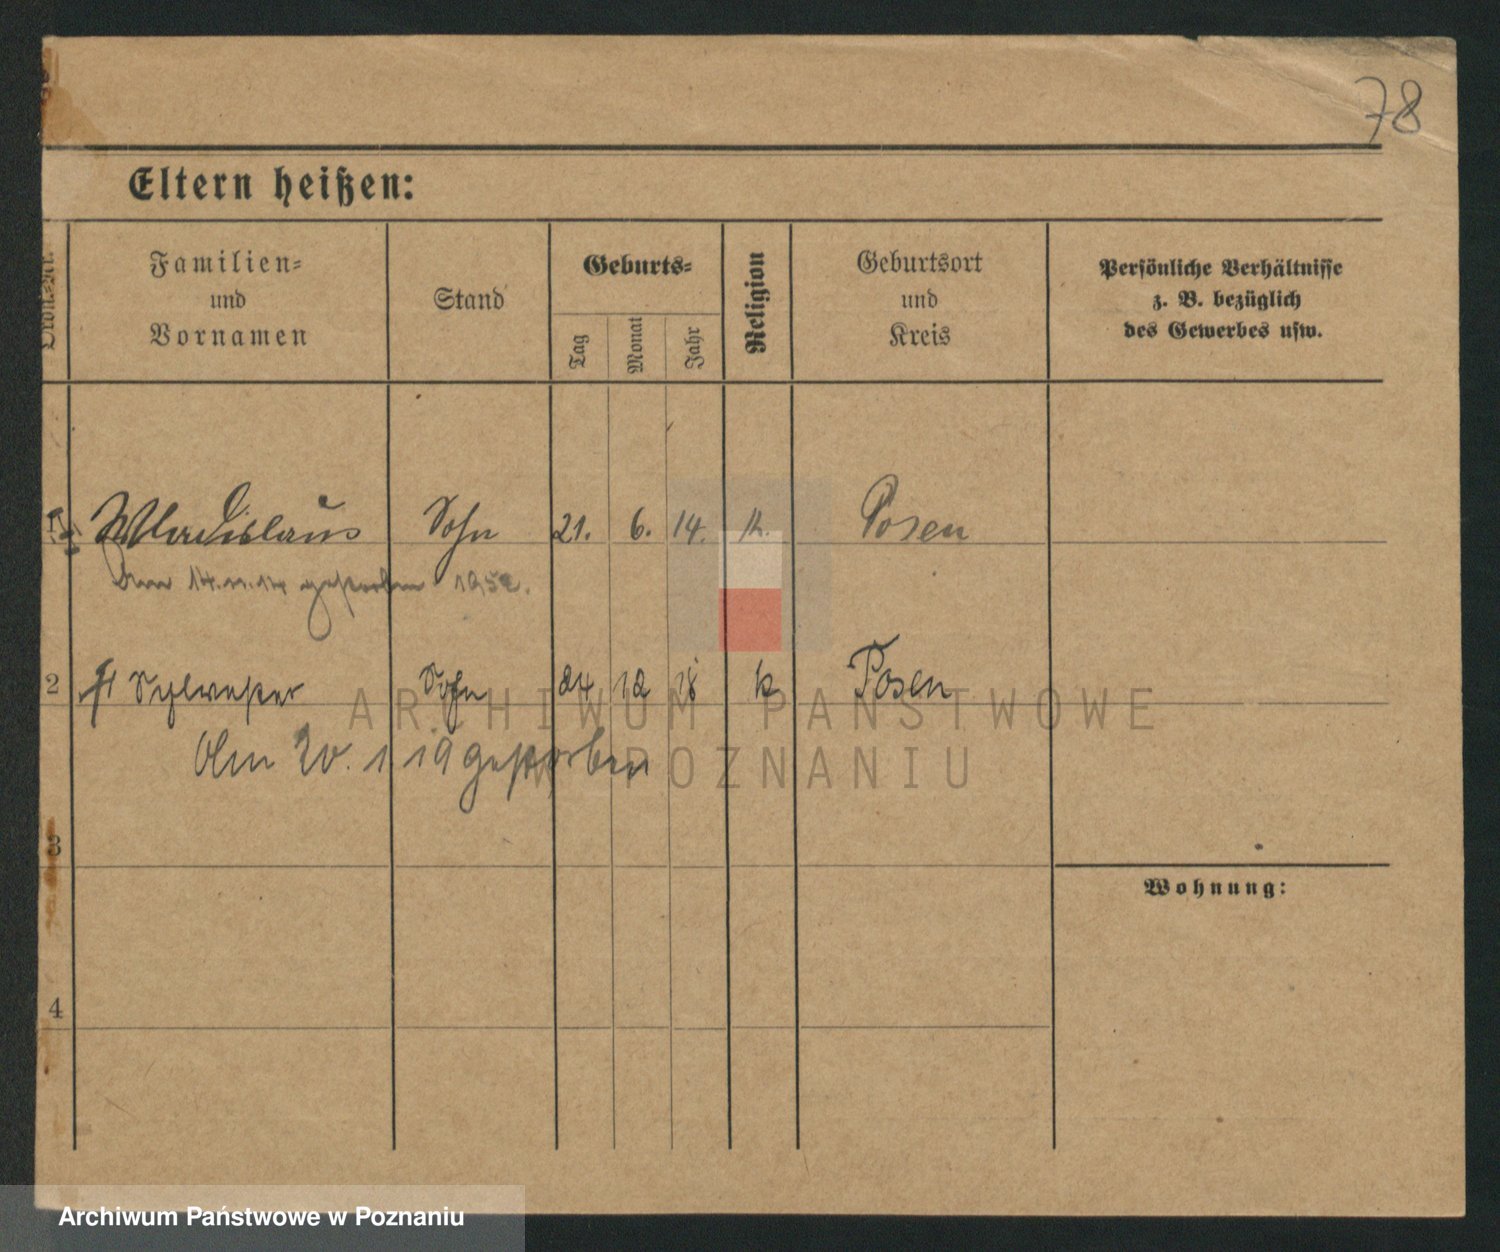 78
Eltern heißen:
Ordn.-Nr.
Familien-
und
Vornamen
Stand
Geburts-
Tag
Monat
Jahr
Religion
Geburtsort
und
Kreis
Persönliche Verhältnisse
z. B. bezüglich
des Gewerbes usw.
Wladislaus Sohn 21. 6. 14. k. Posen
Am 14.11.14 gestorben
2 Sylvester Sohn 24 12 18 k Posen
Am 20. 1 19 gestorben
3
Wohnung:
4
ARCHIWUM PAŃSTWOWE
W POZNANIU
Archiwum Państwowe w Poznaniu